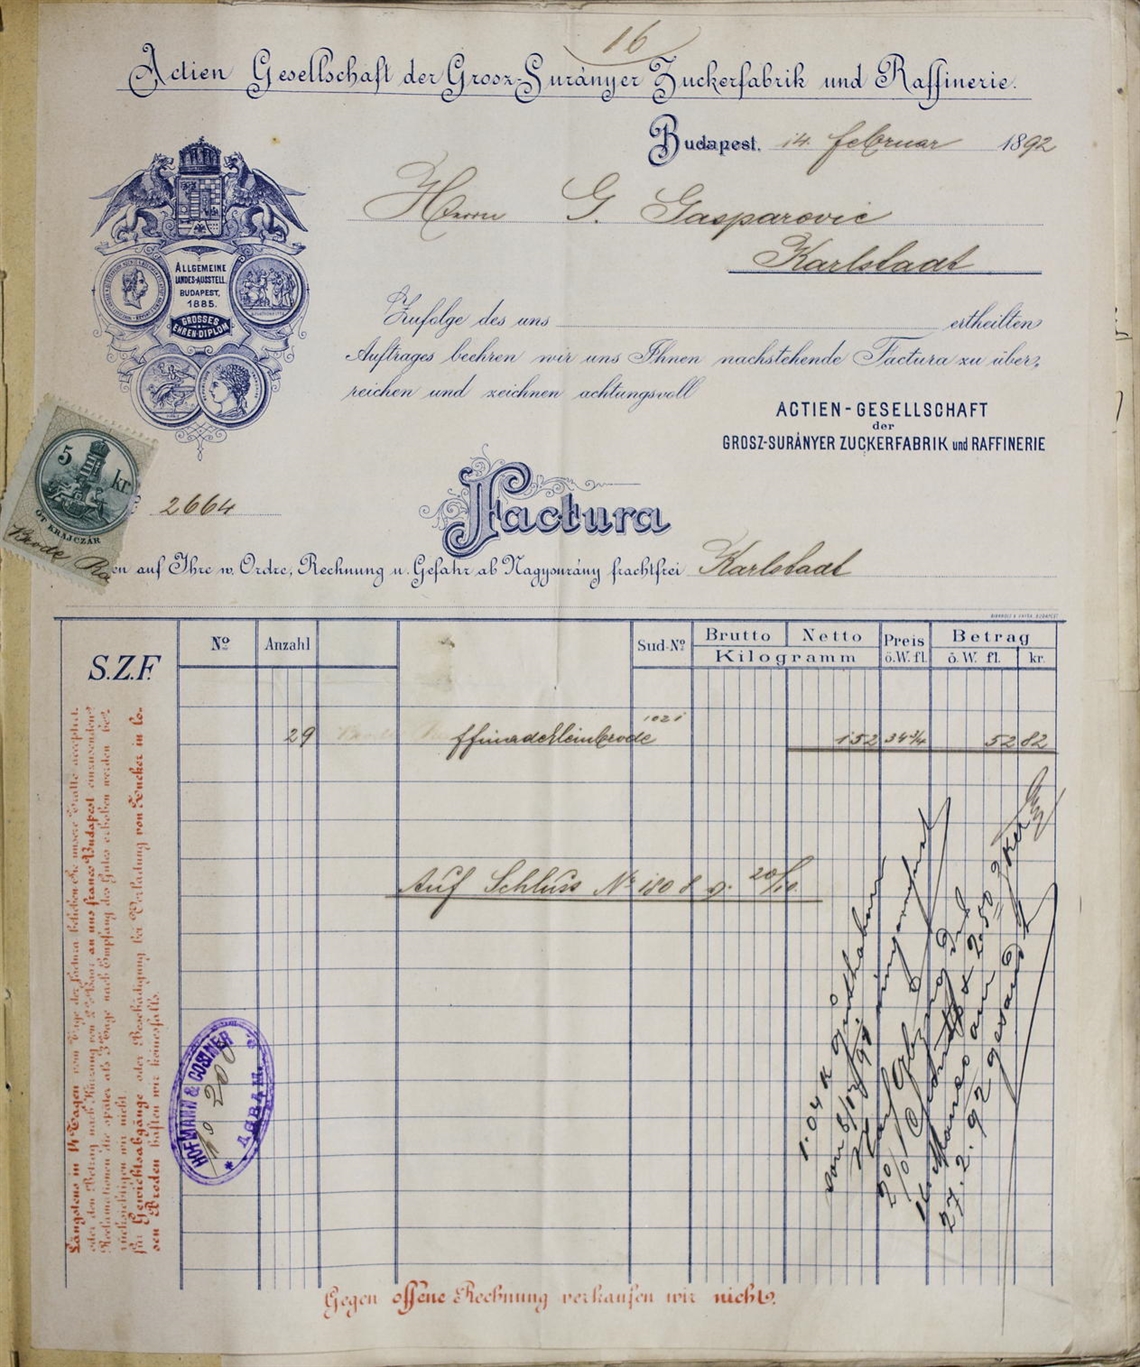 16
Actien Gesellschaft der Grosz-Surányer Zuckerfabrik und Raffinerie.
Budapest, 14. februar 1892
Herrn G. Gasparovic
Karlstadt
ALLGEMEINE
LANDES-AUSSTELL.
BUDAPEST,
1885.
GROSSES
EHREN-DIPLOM
Zufolge des uns ertheilten
Auftrages beehren wir uns Ihnen nachstehende Factura zu über-
reichen und zeichnen achtungsvoll
ACTIEN-GESELLSCHAFT
der
GROSZ-SURÁNYER ZUCKERFABRIK und RAFFINERIE
5 kr
ÖT KRAJCZÁR
Brode Ra
2664
Factura
en auf Ihre w. Ordre, Rechnung u. Gefahr ab Nagysurány frachtfrei Karlstadt
S.Z.F.
No Anzahl Sud-No Brutto Netto Preis Betrag
Kilogramm ö.W. fl. ö. W. fl. kr.
29 ffinadekleinbrode 1021 152 34¾ 52 82
Auf Schluss No 180 d. d. 20/10.
Längstens in 14 Tagen vom Tage der Factura belieben Sie unsere Tratte acceptirt
oder den Betrag nach Kürzung von 2% Sconto an uns franco Budapest einzusenden
Reclamationen die später als 3 Tage nach Empfang des Gutes erhoben werden be-
rücksichtigen wir nicht.
für Gewichtsabgänge oder Beschädigung bei Verladung von Zucker in lo-
sen Broden haften wir keinesfalls.
HOFMANN & COSINER
No 208
* AGRAM. *
2% 
27. 2. 92 gesandt
Gegen offene Rechnung verkaufen wir nicht.